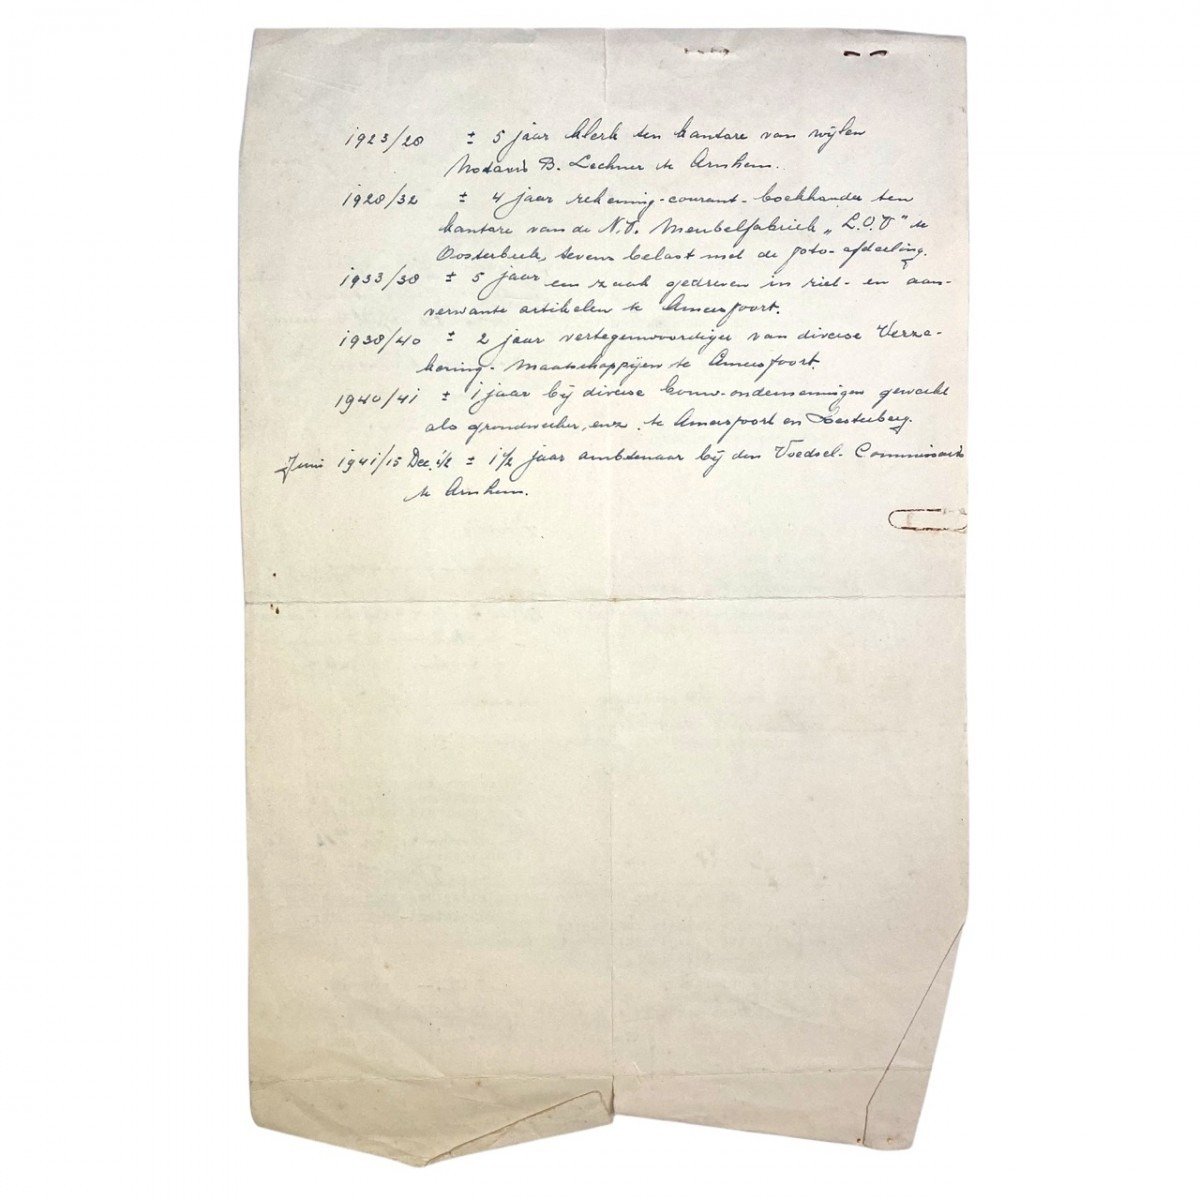 1923/28 ± 5 jaar klerk ten kantore van wijlen
Notaris B. Lechner te Arnhem.
1928/32 ± 4 jaar rekening-courant-boekhouder ten
kantore van de N.V. Meubelfabriek „L.O.V" te
Oosterbeek, tevens belast met de foto-afdeeling.
1933/38 ± 5 jaar een zaak gedreven in riet- en aan-
verwante artikelen te Amersfoort.
1938/40 ± 2 jaar vertegenwoordiger van diverse Verze-
kering-Maatschappijen te Amersfoort.
1940/41 ± 1 jaar bij diverse bouw-ondernemingen gewerkt
als grondwerker, enz. te Amersfoort en Soesterberg.
Juni 1941/15 Dec. 42 ± 1½ jaar ambtenaar bij den Voedsel-Commissaris
te Arnhem.